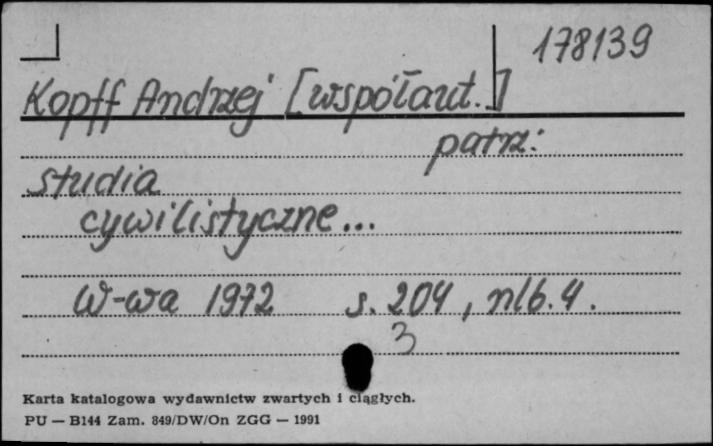 178139
Kopff Andrzej [współaut.]
patrz:
studia
cywilistyczne...
W-wa 1972 s. 204, nlb. 4.
3
Karta katalogowa wydawnictw zwartych i ciągłych.
PU — B144 Zam. 849/DW/On ZGG — 1991